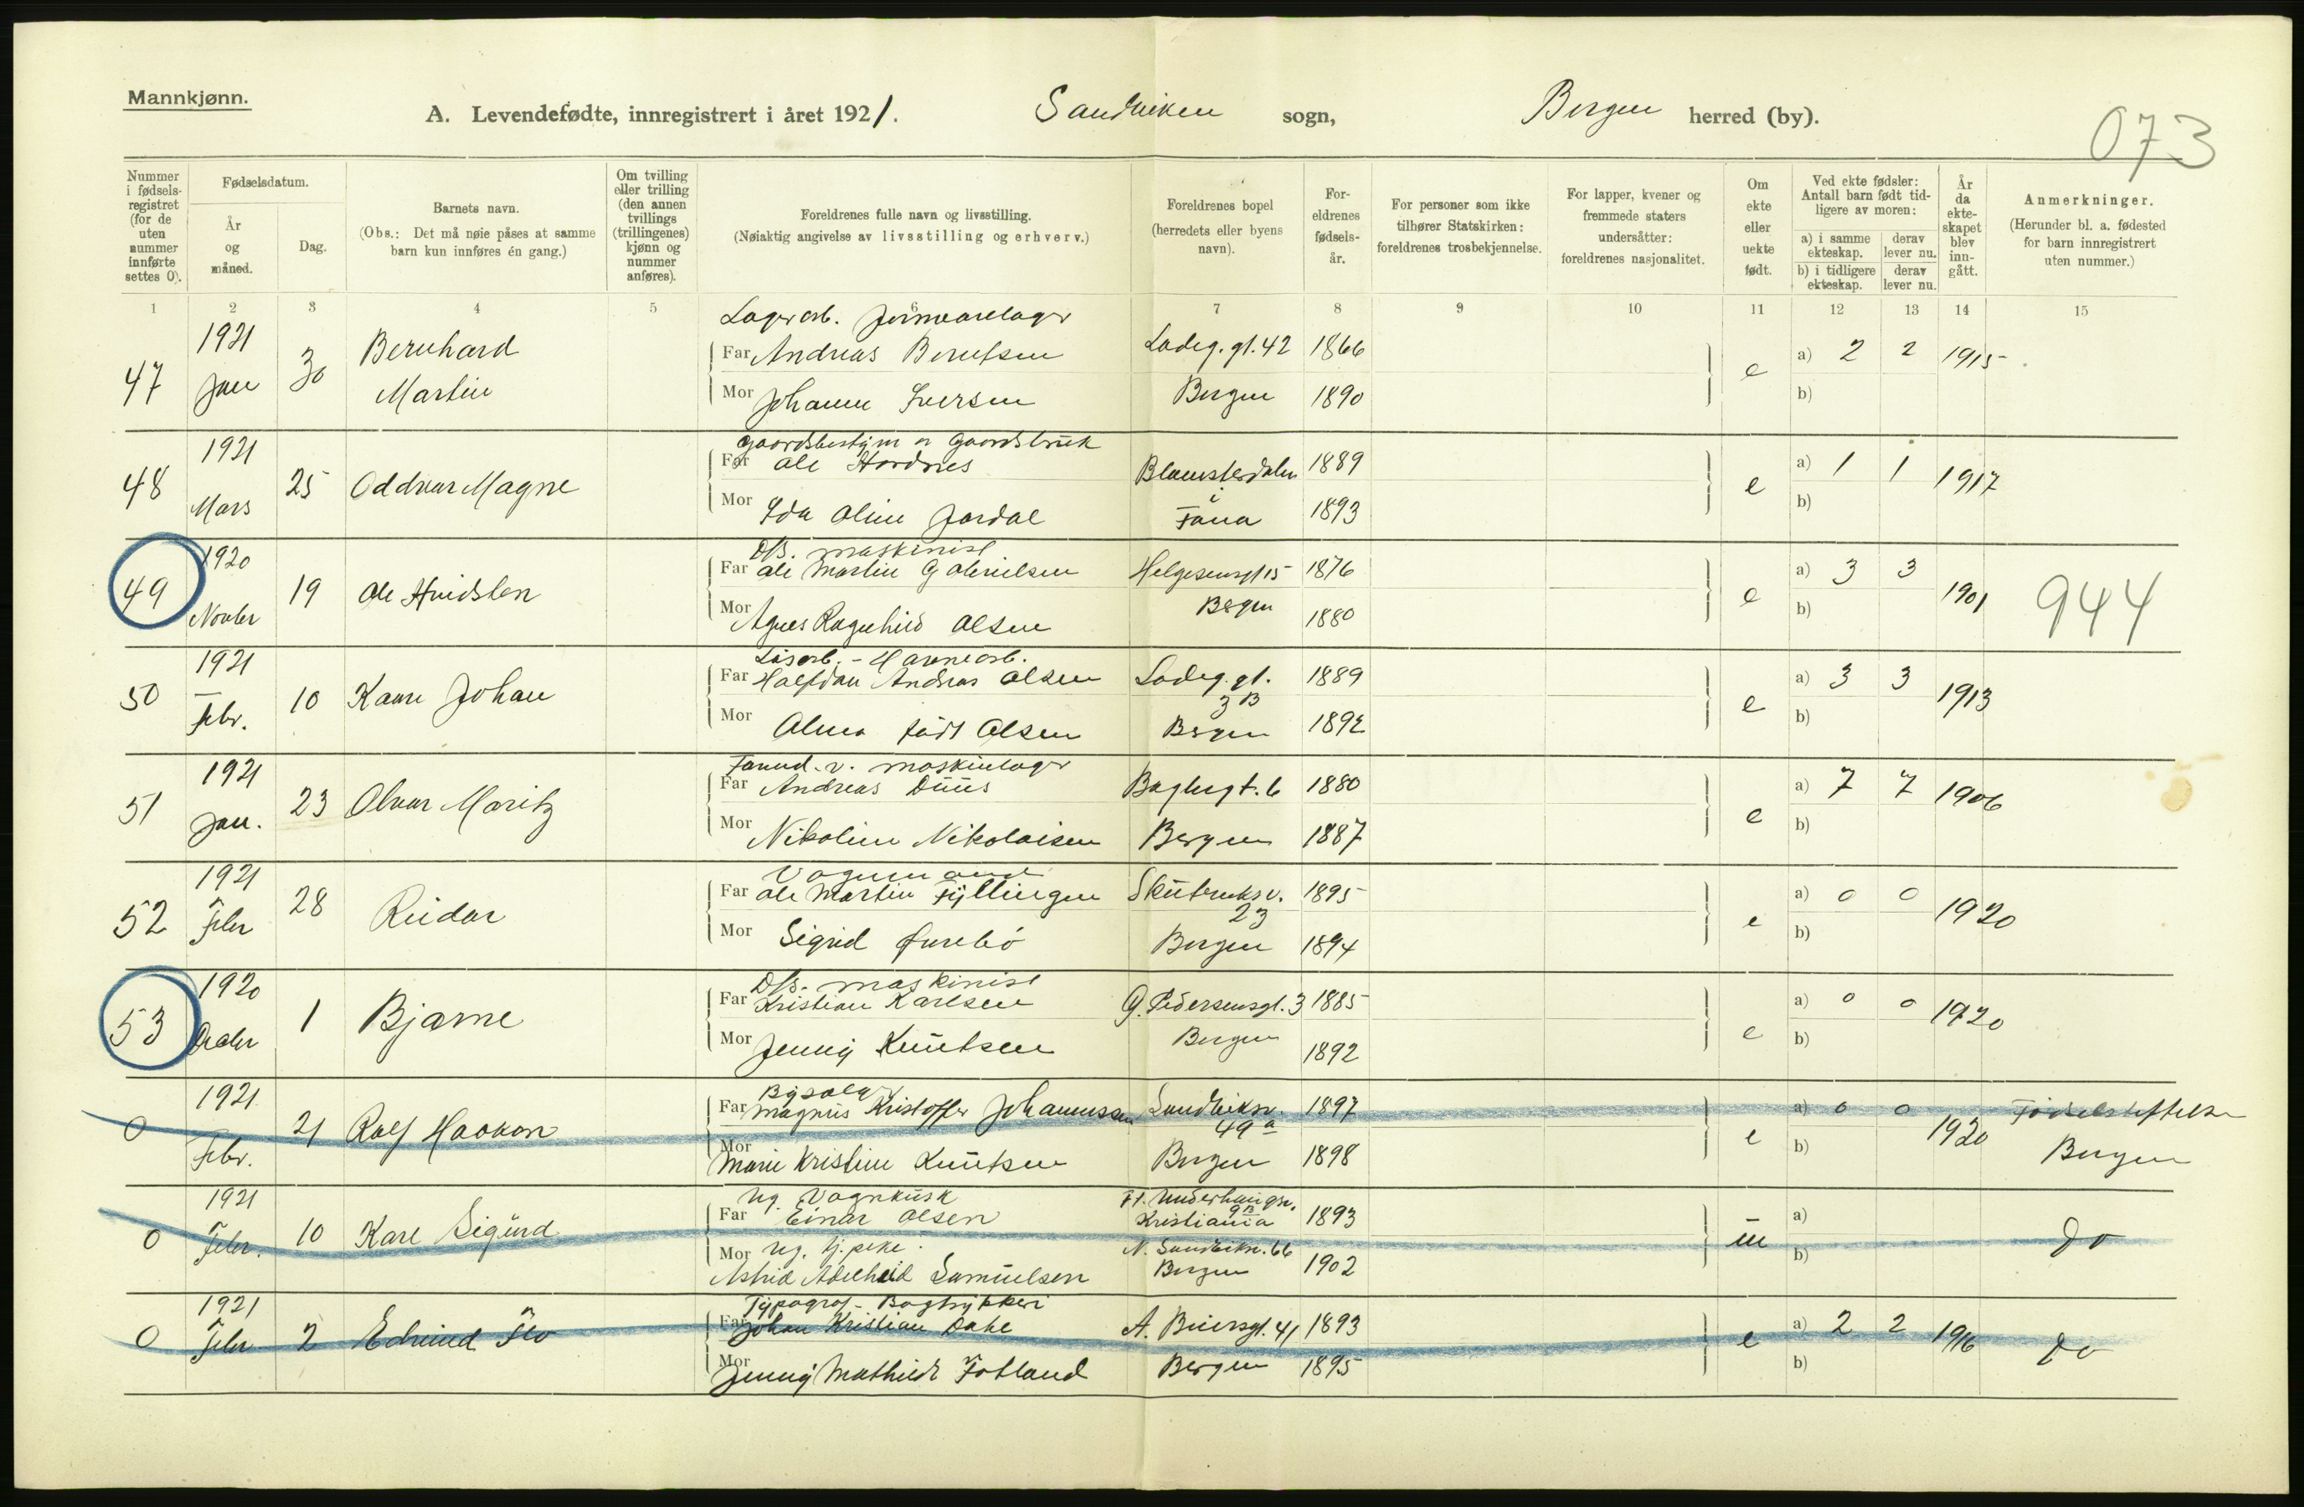 Mannkjønn.
A. Levendefødte, innregistrert i året 1921. Sandviken sogn, Bergen herred (by).
073
Nummer i fødsels-registret (for de uten nummer innførte settes 0).
Fødselsdatum.
År og måned.
Dag.
Barnets navn.
(Obs.: Det må nøie påses at samme barn kun innføres én gang.)
Om tvilling eller trilling (den annen tvillings (trillingenes) kjønn og nummer anføres).
Foreldrenes fulle navn og livsstilling.
(Nøiaktig angivelse av livsstilling og erhverv.)
Foreldrenes bopel (herredets eller byens navn).
For-eldrenes fødsels-år.
For personer som ikke tilhører Statskirken: foreldrenes trosbekjennelse.
For lapper, kvener og fremmede staters undersåtter: foreldrenes nasjonalitet.
Om ekte eller uekte født.
Ved ekte fødsler: Antall barn født tid-ligere av moren:
a) i samme ekteskap. derav lever nu.
b) i tidligere ekteskap. derav lever nu.
År da ekte-skapet blev inn-gått.
Anmerkninger.
(Herunder bl. a. fødested for barn innregistrert uten nummer.)
1 2 3 4 5 6 7 8 9 10 11 12 13 14 15
Lagerarb. Jernvarelager
47 1921 Jan 30 Bernhard Martin
Far Andreas Berntsen Ladeg. gt. 42 1866 e a) 2 2 1915
Mor Johanne Iversen Bergen 1890 b)
Gaardsbestyrer Gaardsbruk
48 1921 Mars 25 Oddvar Magne
Far Ole Hordnes Blomsterdalen 1889 e a) 1 1 1917
Mor Ida Oline Jordal i Fana 1893 b)
D/S. maskinist
49 1920 Novbr 19 Ole Hvidsten
Far Ole Martin Gabrielsen Helgesensgt 15 1876 e a) 3 3 1901 944
Mor Agnes Ragnhild Olsen Bergen 1880 b)
Løsarb. - Havnearb.
50 1921 Febr. 10 Kaare Johan
Far Halfdan Andreas Olsen Ladeg. gt. 3 B 1889 e a) 3 3 1913
Mor Alma født Olsen Bergen 1892 b)
Formd. v. maskinlager
51 1921 Jan. 23 Olvar Moritz
Far Andreas Duus Baglergt. 6 1880 e a) 7 7 1906
Mor Nikoline Nikolaisen Bergen 1887 b)
Vognmand
52 1921 Febr 28 Reidar
Far Ole Martin Fyllingen Skutevuksv. 23 1895 e a) 0 0 1920
Mor Sigrid Furebö Bergen 1894 b)
D/S. maskinist
53 1920 Decbr 1 Bjarne
Far Kristian Karlsen G. Pedersensgt. 3 1885 e a) 0 0 1920
Mor Jenny Knutsen Bergen 1892 b)
0 1921 Febr. 21 Rolf Haakon
Far Magnus Kristoffer Johannessen Sandviksv. 49 a 1897 e a) 0 0 1920 Fødselsstiftelse
Mor Marie Kristine Knutsen Bergen 1898 b) Bergen
Ug. Vognkusk
0 1921 Febr. 10 Kare Sigurd
Far Einar Olsen Kristiania 1893 a) Do
Mor Ug. tj.pike. Astrid Adelheid Samuelsen N. Sandviksv. 66 Bergen 1902 b)
Typograf - Bogtrykkeri
0 1921 Febr 2 Edmund Flo
Far Johan Kristian Dahl A. Beiersgt. 41 1893 e a) 2 2 1916 Do
Mor Jenny Mathilde Fotland Bergen 1895 b)